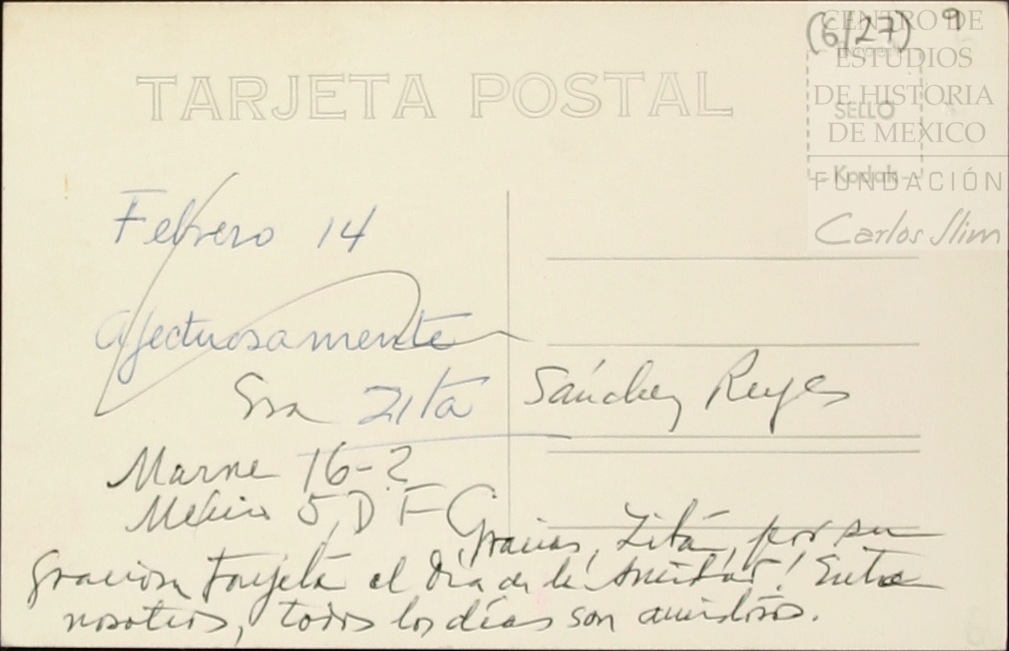 (6/27) 9
CENTRO DE
ESTUDIOS
DE HISTORIA
DE MEXICO
FUNDACIÓN
Carlos Slim
TARJETA POSTAL
SELLO
Kodak
Febrero 14
Afectuosamente
Sra Zita Sánchez Reyes
Marne 16-2
México 5, D F
¡Gracias, Zita, por su
graciosa tarjeta el día de la amistad! Entre
nosotros, todos los días son amistosos.